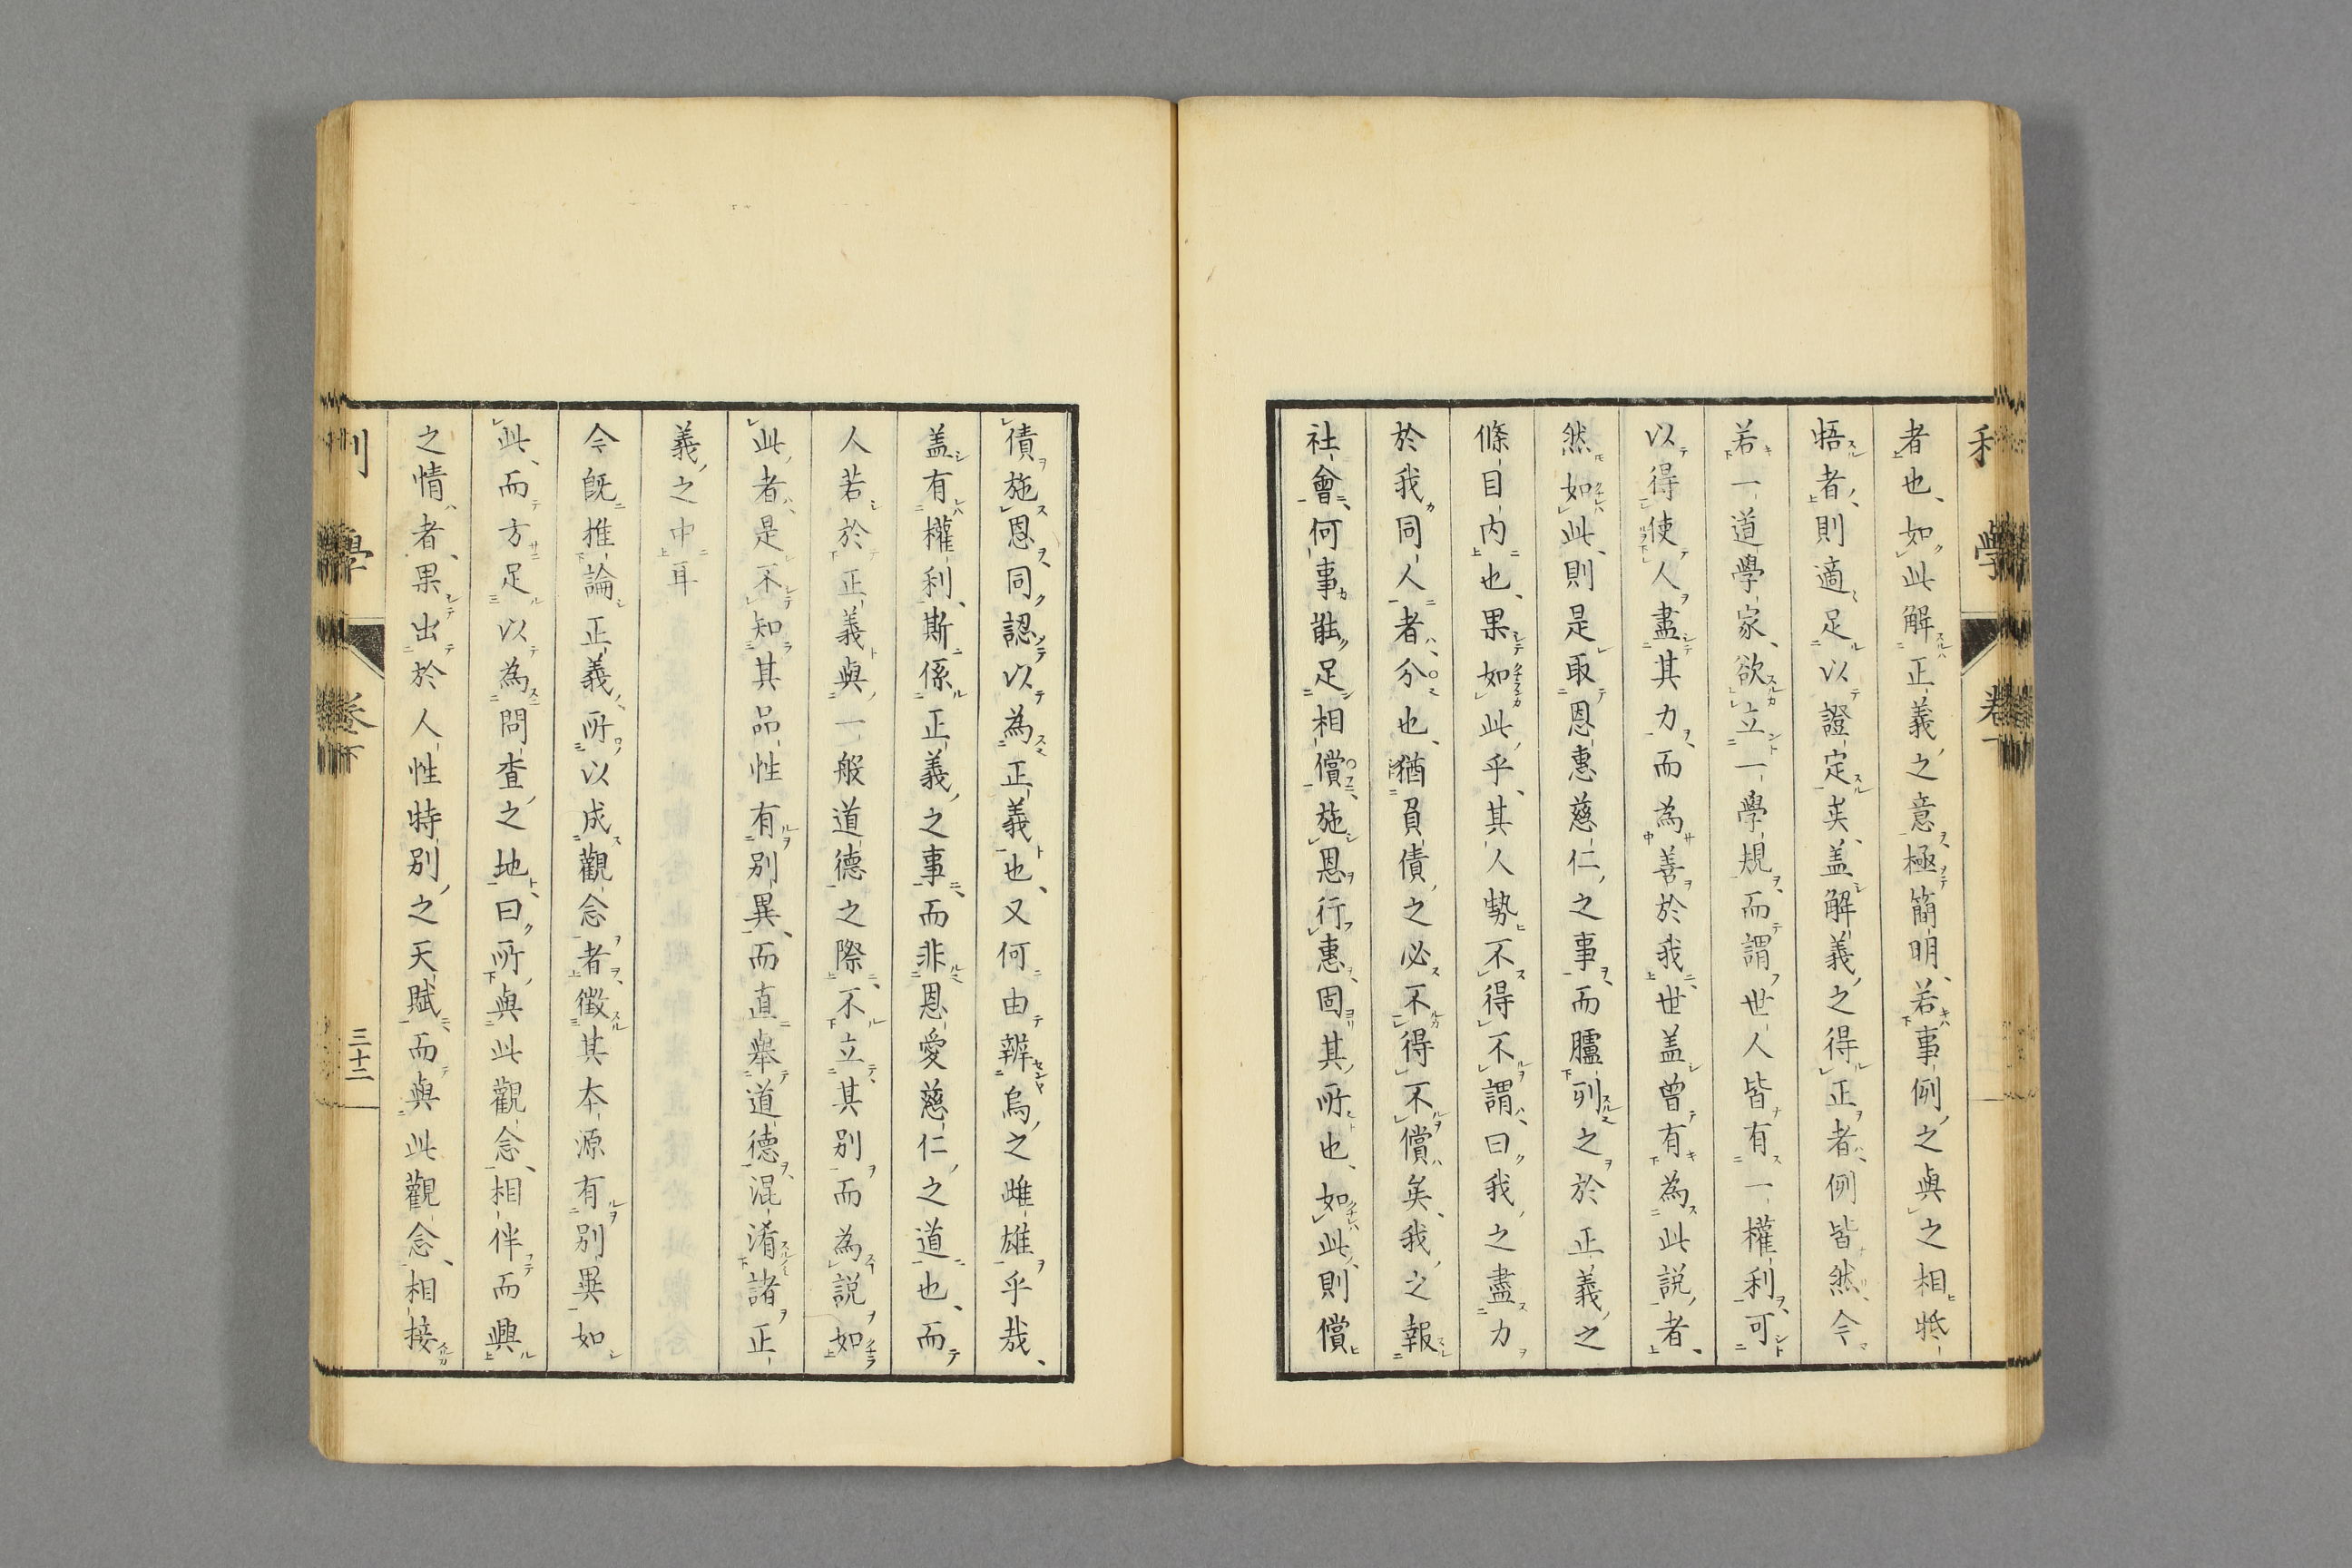 者也、如此解正義之意極簡明、若事例之與之相牴
牾者、則適足以證定矣、盖解義之得正者、例皆然、今
若一道學家、欲立一學規、而謂世人皆有一權利、可
以得使人盡其力、而為善於我、世盖曾有為此説者、
然如此、則是取恩惠慈仁之事、而臚列之於正義之
條目內也、果如此乎、其人勢不得不謂、曰我之盡力
於我同人者、分也、猶負債之必不得不償矣、我之報
社會、何事能足相償、施恩行惠、固其所也、如此、則償
債施恩、同認以為正義也、又何由辨烏之雌雄乎哉、
盖有權利、斯係正義之事、而非恩愛慈仁之道也、而
人若於正義與一般道德之際、不立其別、而為説如
此者、是不知其品性有別異、而直舉道德、混淆諸正
義之中耳
今既推論正義所以成觀念者、徵其本源有別異如
此、而方足以為問查之地、曰、所與此觀念、相伴而興
之情者、果出於人性特別之天賦、而與此觀念、相接
利 學 卷下
三十二
學